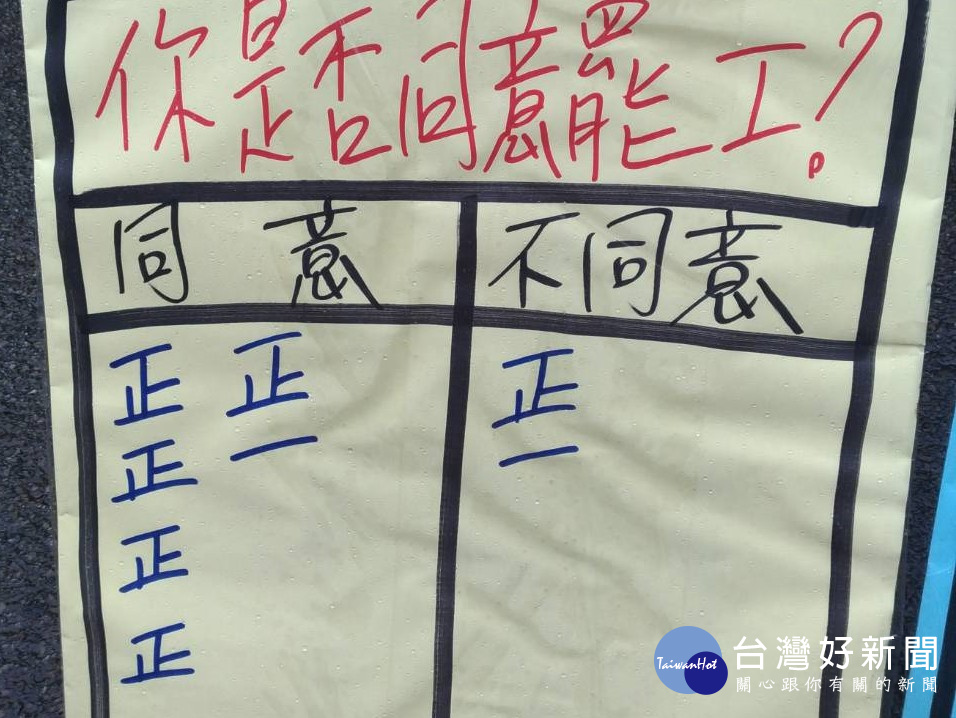 你是否同意罷工?
同意 不同意
正 正 正
正 一 一
正
正
TaiwanHot
台灣好新聞
關心跟你有關的新聞